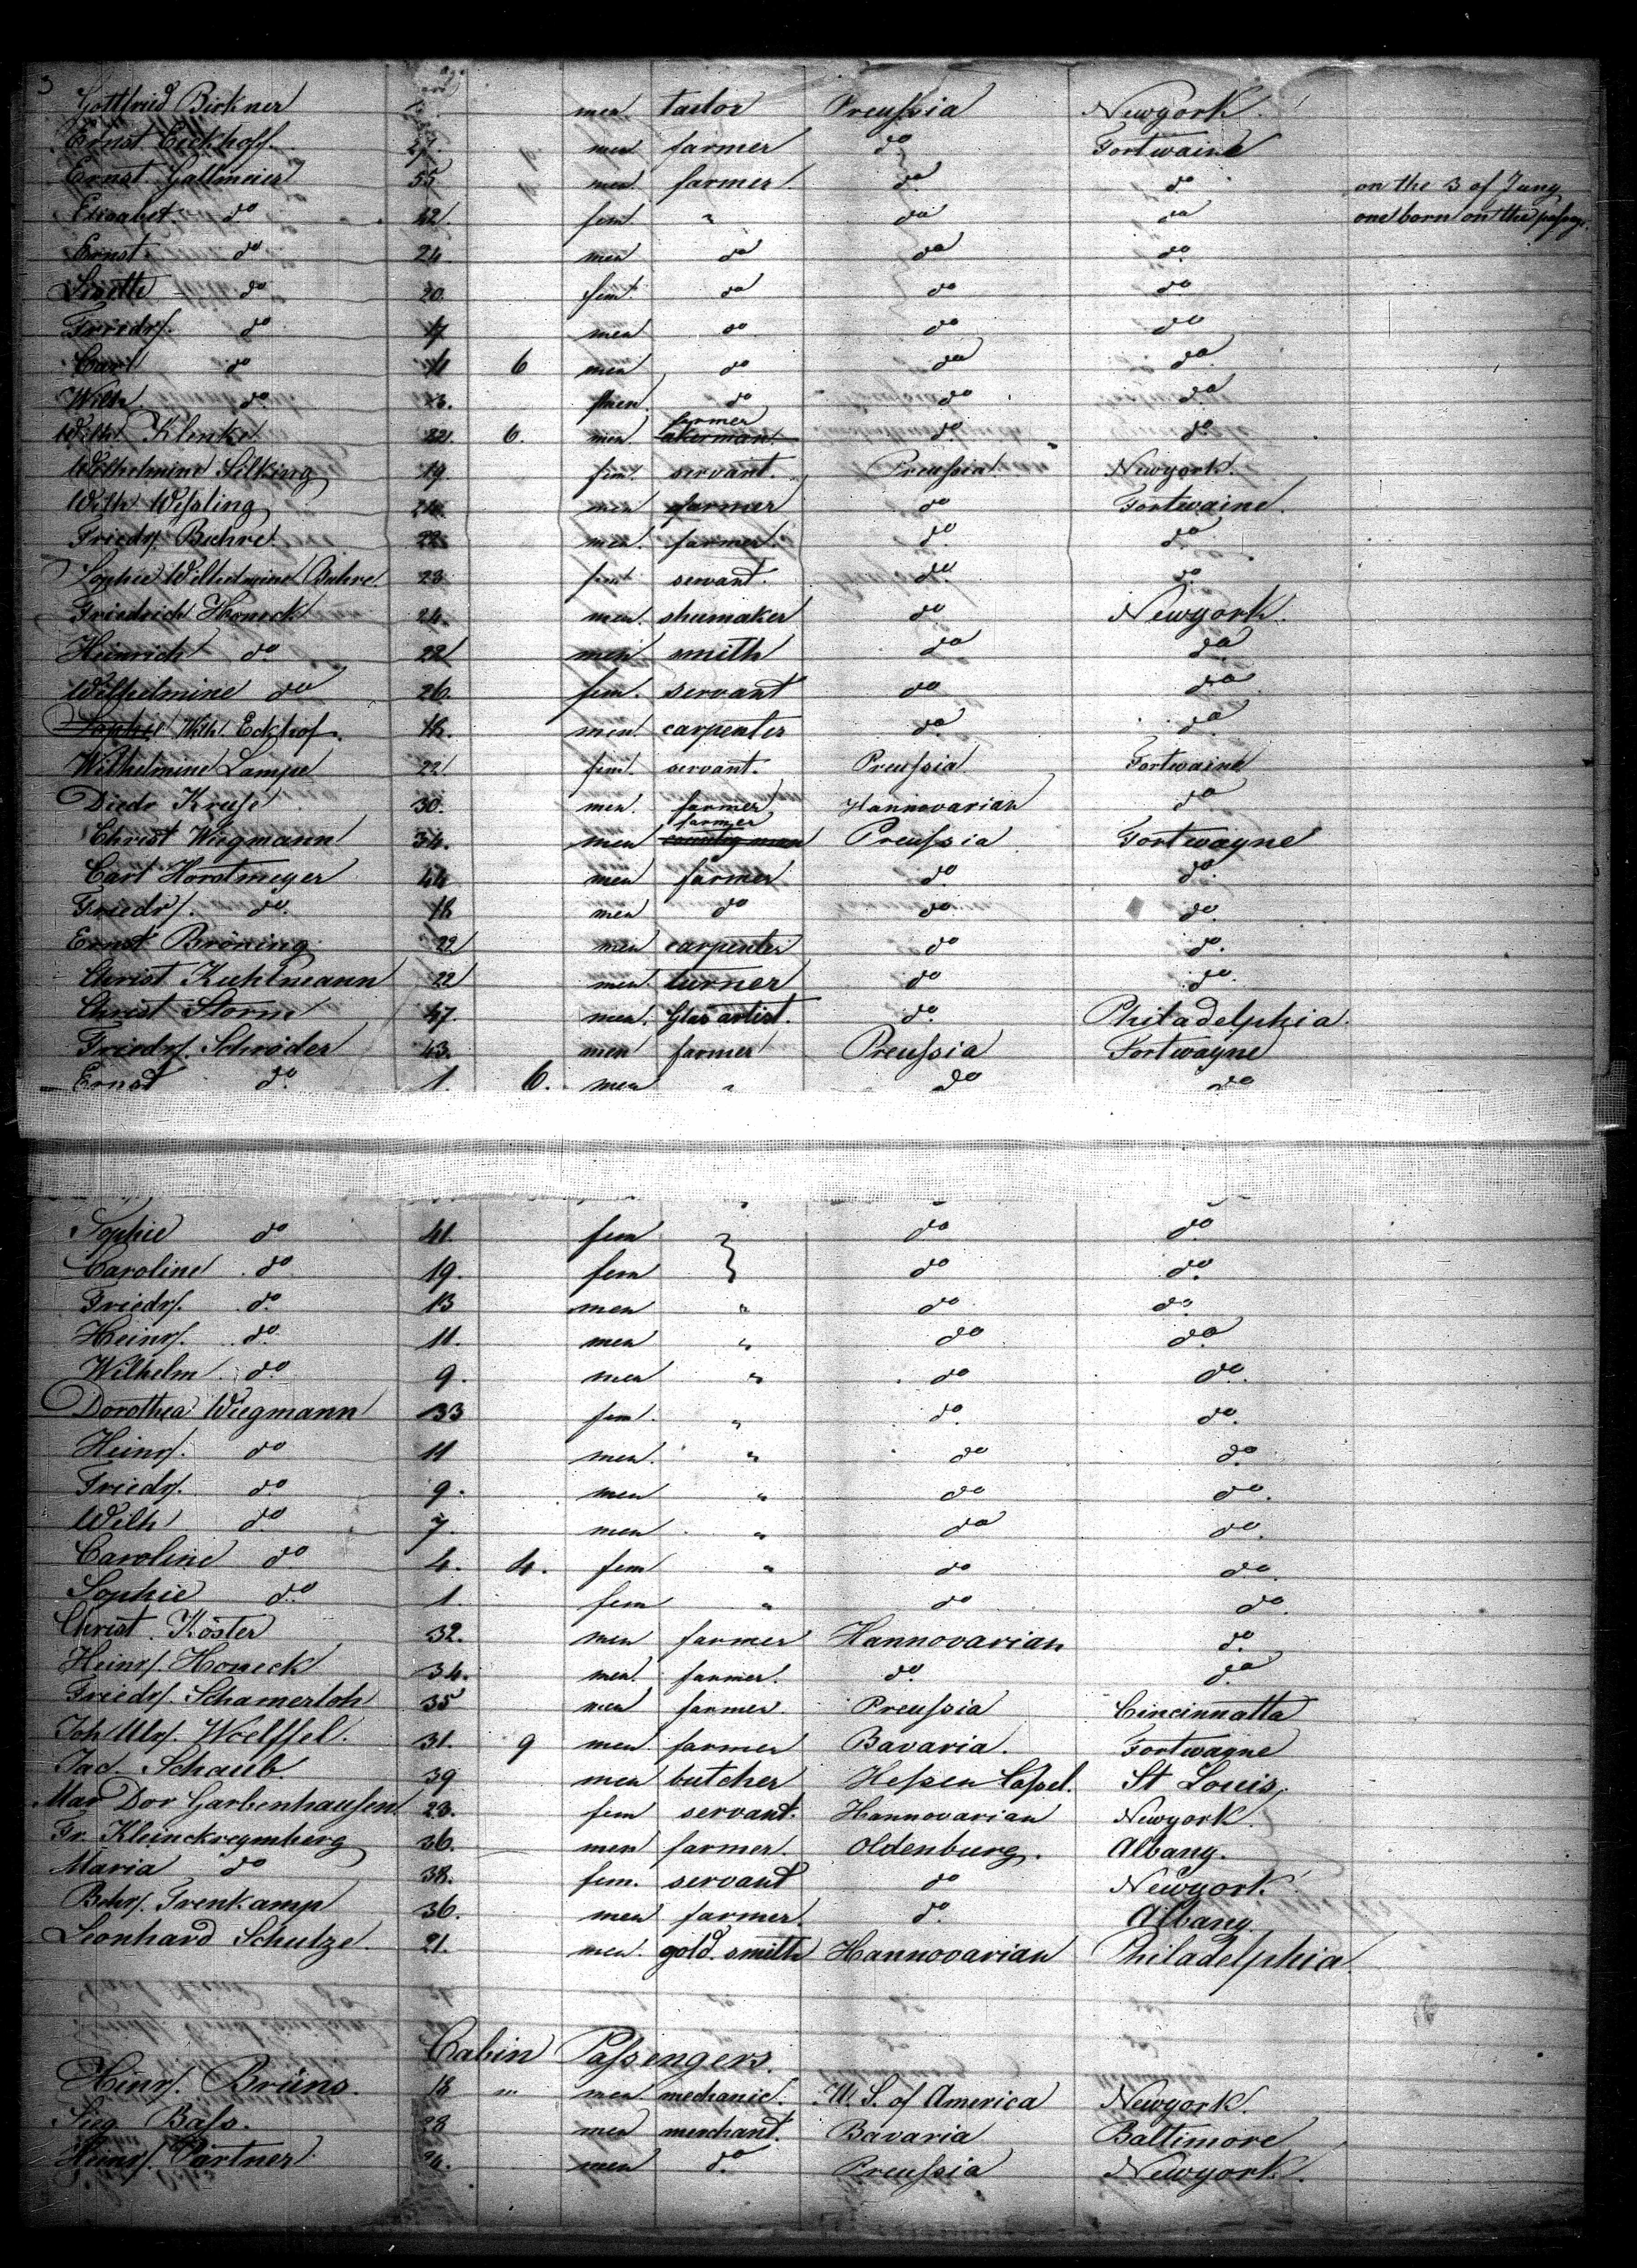 3
Gottfried Birkner men tailor Preussia Newyork
Ernst Eickhoff 27. men farmer do Fortwaine
Ernst Gallmeier 55 men farmer do do on the 3 of Juny
Elisabet do 42. fem " do do one born on the passage.
Ernst do 24. men do do do
Linette do 20. fem. do do do
Friedr. do 17 men do do do
Carl do 11 6 men do do do
Wilh do 3. men do do do
Wilh Klenke 22. 6. men farmer akerman do do
Wilhelmine Silking 19. fem. servant. Preussia Newyork.
Wilh Wessling 24. men farmer do Fortwaine.
Friedr. Buhre 22 men. farmer. do do
Sophie Wilhelmine Buhre 23 fem servant. do do
Friedrich Honeck 24. men. shumaker do Newyork.
Heinrich do 22 men smith do do
Wilhelmine do 26. fem. servant do do
Sophie Wilh. Eckhof. 18. men carpenter do do
Wilhelmine Lampe 22 fem. servant. Preussia Fortwaine
Diedr Kruse 30. men. farmer Hannovarian do
Christ Wiegmann 34. men farmer countryman Preussia Fortwayne
Carl Horstmeyer 44 men farmer do do
Friedr. do. 18 men do do do
Ernst Bröning 22 men carpenter do do.
Christ Kuhlmann 22 men turner do do.
Christ Storm 47. men. Glas artist. do. Philadelphia.
Friedr. Schröder 43. men farmer Preussia Fortwayne
Ernst do. 1. 6. men " do do
Sophie do 41. fem do do
Caroline do 19. fem do do.
Friedr. do. 13 men " do do.
Heinr. do. 11. men " do do.
Wilhelm do. 9. men " do do.
Dorothea Wiegmann 33 fem. " do. do.
Heinr. do 11 men. " do do.
Friedr. do. 9. men " do do.
Wilh do. 7. men " do do.
Caroline do 4. 4. fem " do do.
Sophie do. 1. fem " do do.
Christ. Köster 32. men farmer Hannovarian do.
Heinr. Honeck 34. men. farmer. do. do.
Friedr. Schamerloh 35 men farmer. Preussia Cincinnatta
Joh Ulr. Woelffel. 31. 9 men farmer Bavaria. Fortwayne
Jac. Schaub. 39 men butcher Hessen Cassel. St Louis,
Mar Dor Garbenhausen 23. fem servant. Hannovarian Newyork.
Fr. Kleinckreymberg 36. men farmer. Oldenburg. Albany.
Maria do 38. fem. servant do Newyork.
Behr. Trenkamp 36. men farmer. do. Albany
Leonhard Schulze. 21. men. gold smith Hannovarian Philadelphia.
Cabin Passengers.
Hinr. Brüns. 18 " men mechanic. U. S. of America Newyork.
Sieg Bass. 28 men merchant. Bavaria Baltimore
Heinr. Pärtner. men do. Preussia Newyork.